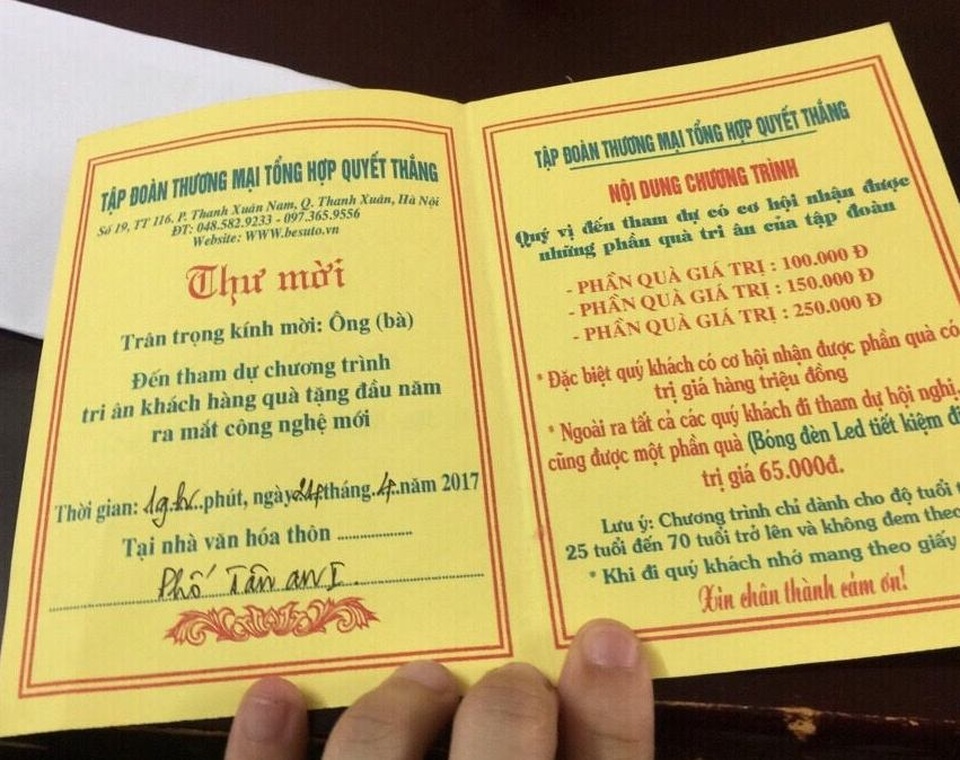 TẬP ĐOÀN THƯƠNG MẠI TỔNG HỢP QUYẾT THẮNG
Số 19, TT 116, P. Thanh Xuân Nam, Q. Thanh Xuân, Hà Nội
ĐT: 048.582.9233 - 097.365.9556
Website: WWW.besuto.vn
Thư mời
Trân trọng kính mời: Ông (bà)
Đến tham dự chương trình
tri ân khách hàng quà tặng đầu năm
ra mắt công nghệ mới
Thời gian: 19h...phút, ngày 24 tháng..4..năm 2017
Tại nhà văn hóa thôn ...................
Phố Tân an I.
TẬP ĐOÀN THƯƠNG MẠI TỔNG HỢP QUYẾT THẮNG
NỘI DUNG CHƯƠNG TRÌNH
Quý vị đến tham dự có cơ hội nhận được
những phần quà tri ân của tập đoàn
- PHẦN QUÀ GIÁ TRỊ : 100.000 Đ
- PHẦN QUÀ GIÁ TRỊ : 150.000 Đ
- PHẦN QUÀ GIÁ TRỊ : 250.000 Đ
* Đặc biệt quý khách có cơ hội nhận được phần quà có
trị giá hàng triệu đồng
* Ngoài ra tất cả các quý khách đi tham dự hội nghị
cũng được một phần quà (Bóng đèn Led tiết kiệm
trị giá 65.000đ.
Lưu ý: Chương trình chỉ dành cho độ tuổi
25 tuổi đến 70 tuổi trở lên và không đem theo
* Khi đi quý khách nhớ mang theo giấy
Xin chân thành cảm ơn!